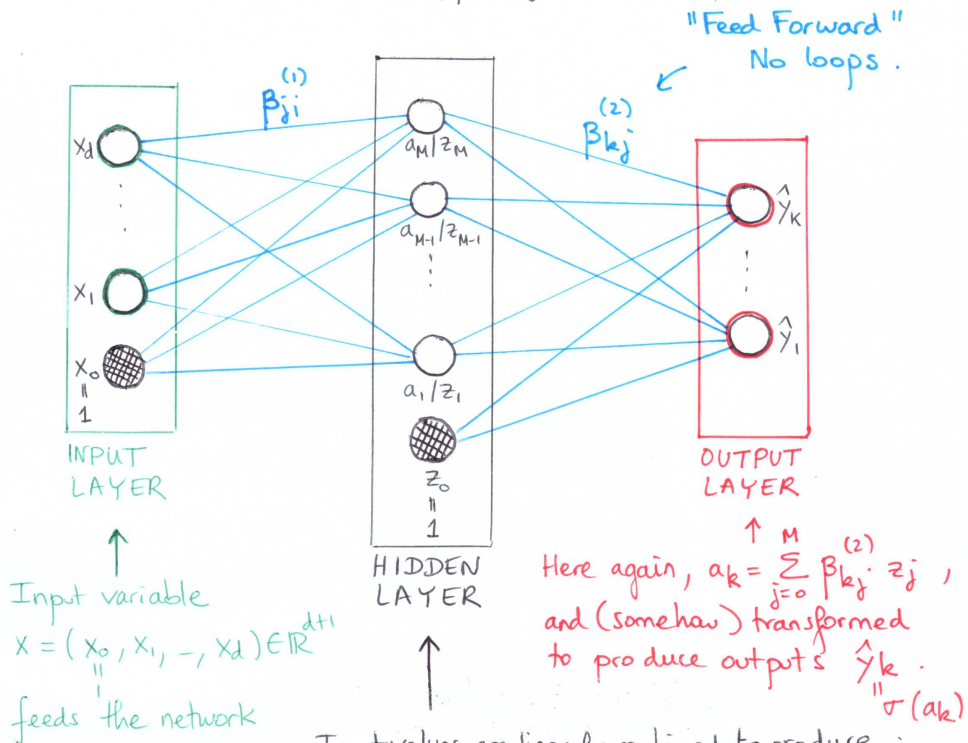 "Feed Forward"
No loops.
β_ji^(1)
β_kj^(2)
x_d
x_1
x_0
=
1
INPUT
LAYER
a_M/z_M
a_M-1/z_M-1
a_1/z_1
z_0
=
1
HIDDEN
LAYER
ŷ_K
ŷ_1
OUTPUT
LAYER
Input variable
x = (x_0, x_1, -, x_d) ∈ ℝ^d+1
=
1
feeds the network
Here again, a_k = Σ_{j=0}^{M} β_kj^(2) z_j,
and (somehow) transformed
to produce outputs ŷ_k.
= σ(a_k)
to produce